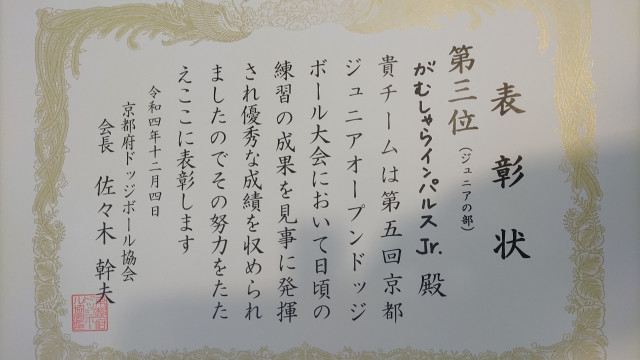 表彰状
第三位（ジュニアの部）
がむしゃらインパルスJr. 殿
貴チームは第五回京都
ジュニアオープンドッジ
ボール大会において日頃の
練習の成果を見事に発揮
され優秀な成績を収められ
ましたのでその努力をたた
えここに表彰します
令和四年十二月四日
京都府ドッジボール協会
会長 佐々木 幹夫